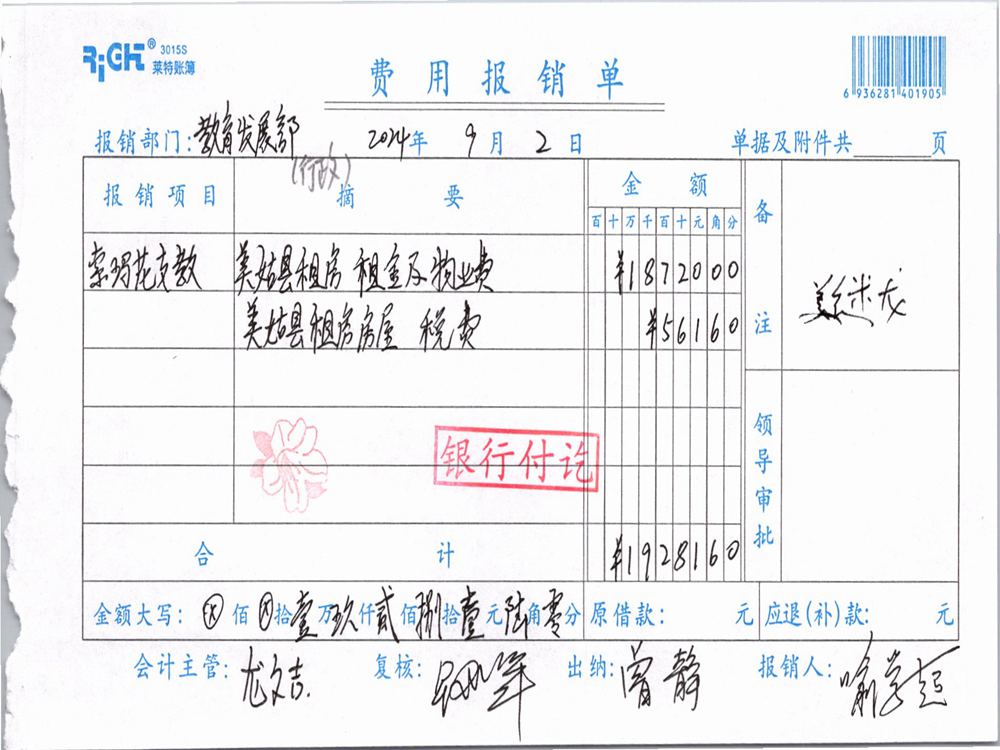 RiGHT® 3015S
莱特账簿
费用报销单
6 936281 401905
报销部门:教育发展部 2024年 9月 2日 单据及附件共 页
(行政)
报销项目 摘要 金额 备注
百十万千百十元角分
索玛花支教 美姑县租房 租金及物业费 ¥1872000
美姑县租房房屋 税费 ¥56160
银行付讫
领导审批
合计 ¥1928160
金额大写: ⊗佰⊗拾壹万玖仟贰佰捌拾壹元陆角零分 原借款: 元 应退(补)款: 元
会计主管: 尤文吉 复核: 出纳: 曾静 报销人: 喻学超